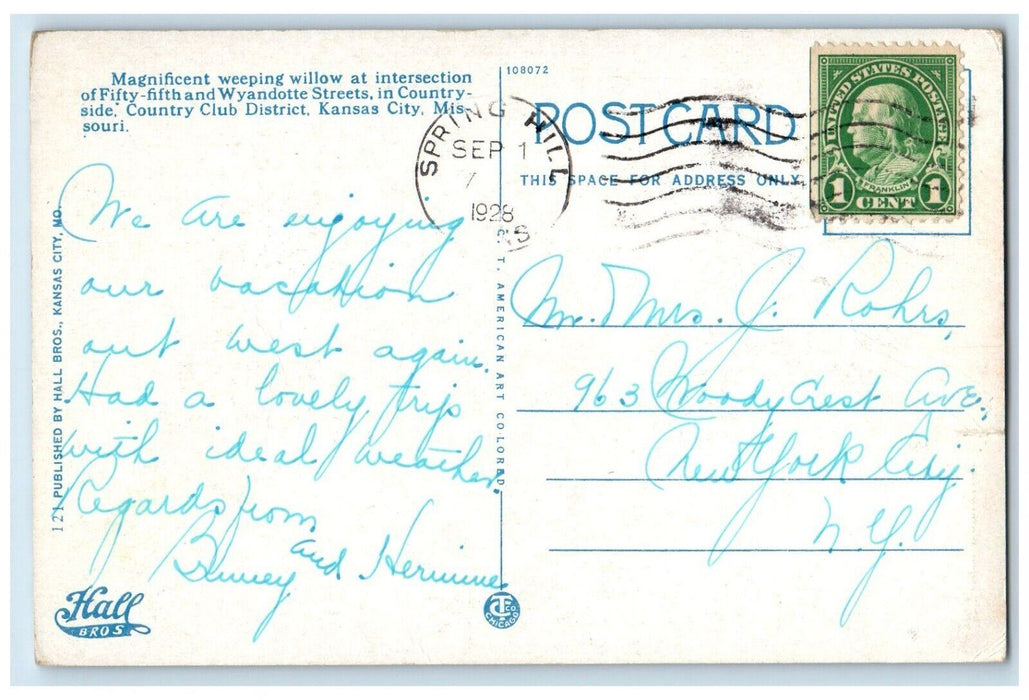 Magnificent weeping willow at intersection
of Fifty-fifth and Wyandotte Streets, in Country-
side, Country Club District, Kansas City, Mis-
souri.
We are enjoying
our vacation
out west again.
Had a lovely trip
with ideal weather.
Regards from
and Hermine
121 PUBLISHED BY HALL BROS., KANSAS CITY, MO.
Hall
BROS
C. T. AMERICAN ART COLORED
CT CO.
CHICAGO
108072
POST CARD
THIS SPACE FOR ADDRESS ONLY
SPRING HILL
SEP 1
1928
UNITED STATES POSTAGE
FRANKLIN
1 CENT 1
Mr. & Mrs. J. Rohrs,
963 Woodycrest Ave.,
New York City.
N.Y.